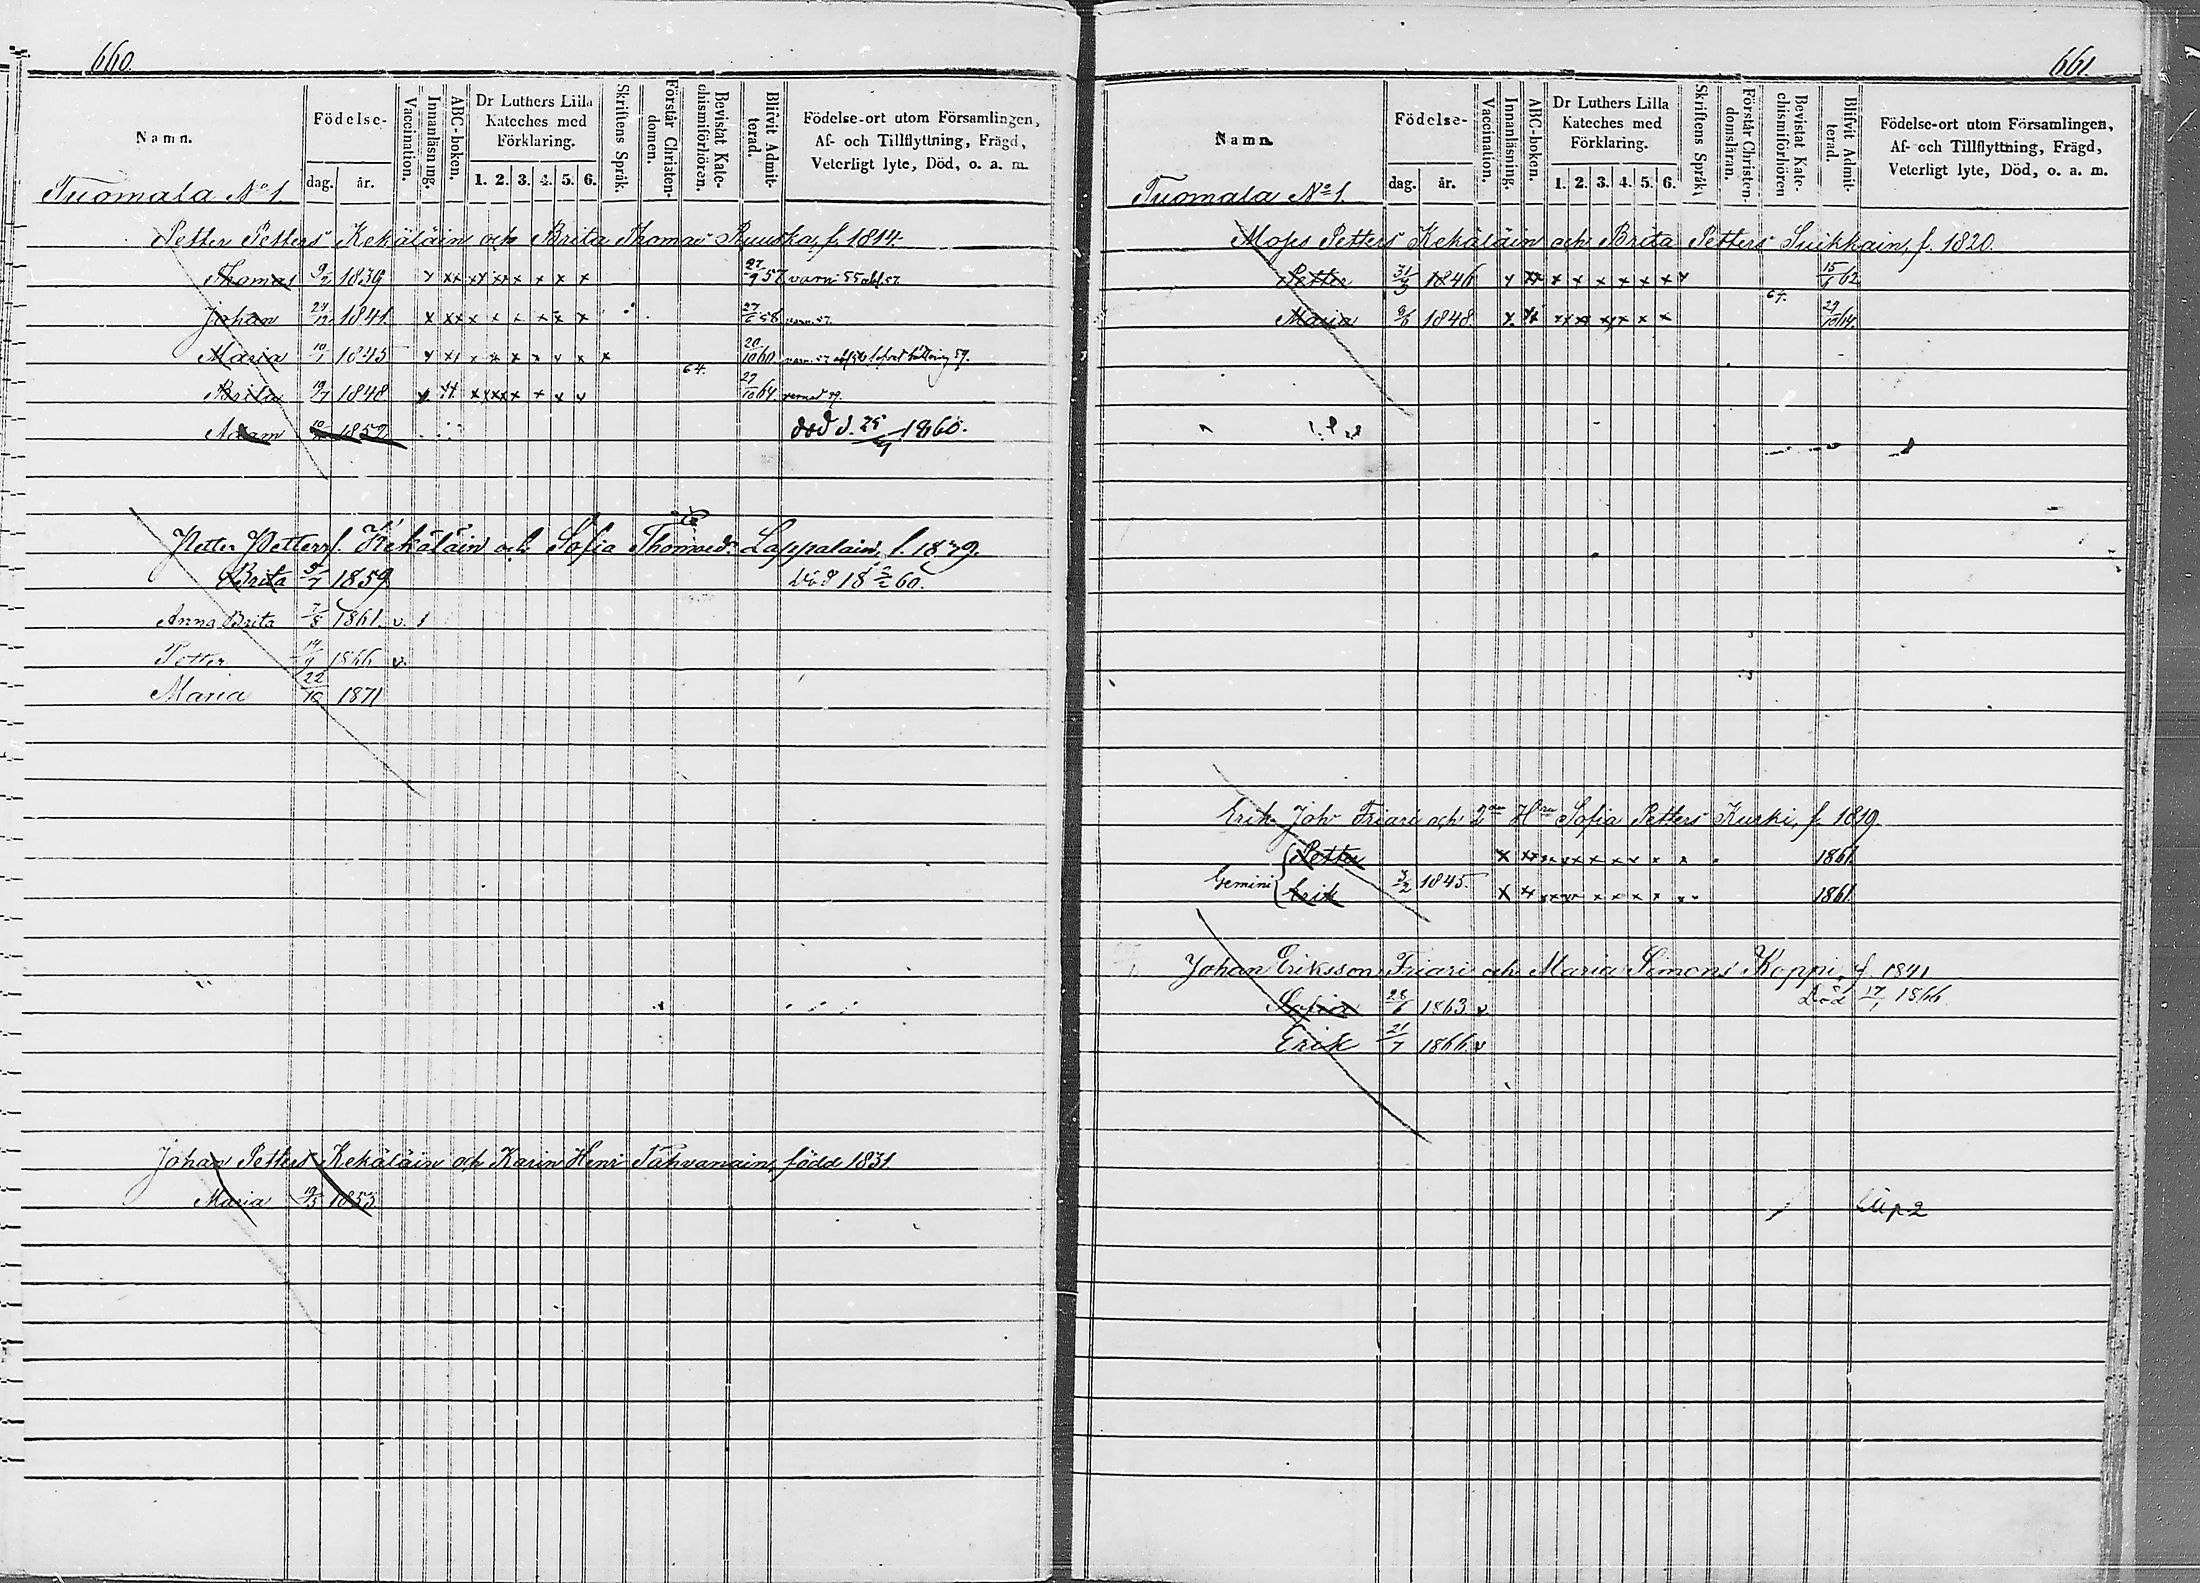 660.
Namn. Födelse- dag. år. Vaccination. Innanläsning. ABC-boken. Dr Luthers Lilla Kateches med Förklaring. 1. 2. 3. 4. 5. 6. Skriftens Språk. Förstår Christen-domen. Bevistat Kate-chismiförhören. Blifvit Admit-terad. Födelse-ort utom Församlingen, Af- och Tillflyttning, Frägd, Veterligt lyte, Död, o. a. m.
Tuomala No 1.
Petter Petters Kekäläin och Brita Thomas Ruuska, f. 1814.
Thomas 1839 27/9 57
Johan 1841 27/6 58
Maria 10/1 1845 20/10 60
64.
Brita 19/7 1848 29/10 64
Adam 1852 död d. 1860.
Petter Petterss. Kekäläin och Sofia Thomasd. Lappalain, f. 1839.
Brita 1859 död 18 60.
Anna Brita 7/8 1861. v.
Petter 14/9 1866 v.
Maria 22/10 1871
Johan Petters Kekäläin och Karin Henr Tahvanain, född 1831
Maria 19/3 1855
661.
Namn. Födelse- dag. år. Vaccination. Innanläsning. ABC-boken. Dr Luthers Lilla Kateches med Förklaring. 1. 2. 3. 4. 5. 6. Skriftens Språk. Förstår Christen-domsläran. Bevistat Kate-chismiförhören Blifvit Admit-terad. Födelse-ort utom Församlingen, Af- och Tillflyttning, Frägd, Veterligt lyte, Död, o. a. m.
Tuomala No 1.
Moses Petters Kekäläin och Brita Petters Suikkain, f. 1820.
Petter 1846 62
64.
Maria 9/6 1848 29/10 64.
Erik Joh Friari och 2dra Hru Sofia Petters Kurki, f. 1819.
Petter 1861
Gemini Erik 3/2 1845. 1861.
Johan Eriksson Friari och Maria Simons Koppi, f. 1841
Sofia 28/6 1863 v. Död 17/1 1866.
Erik 21/7 1866. v